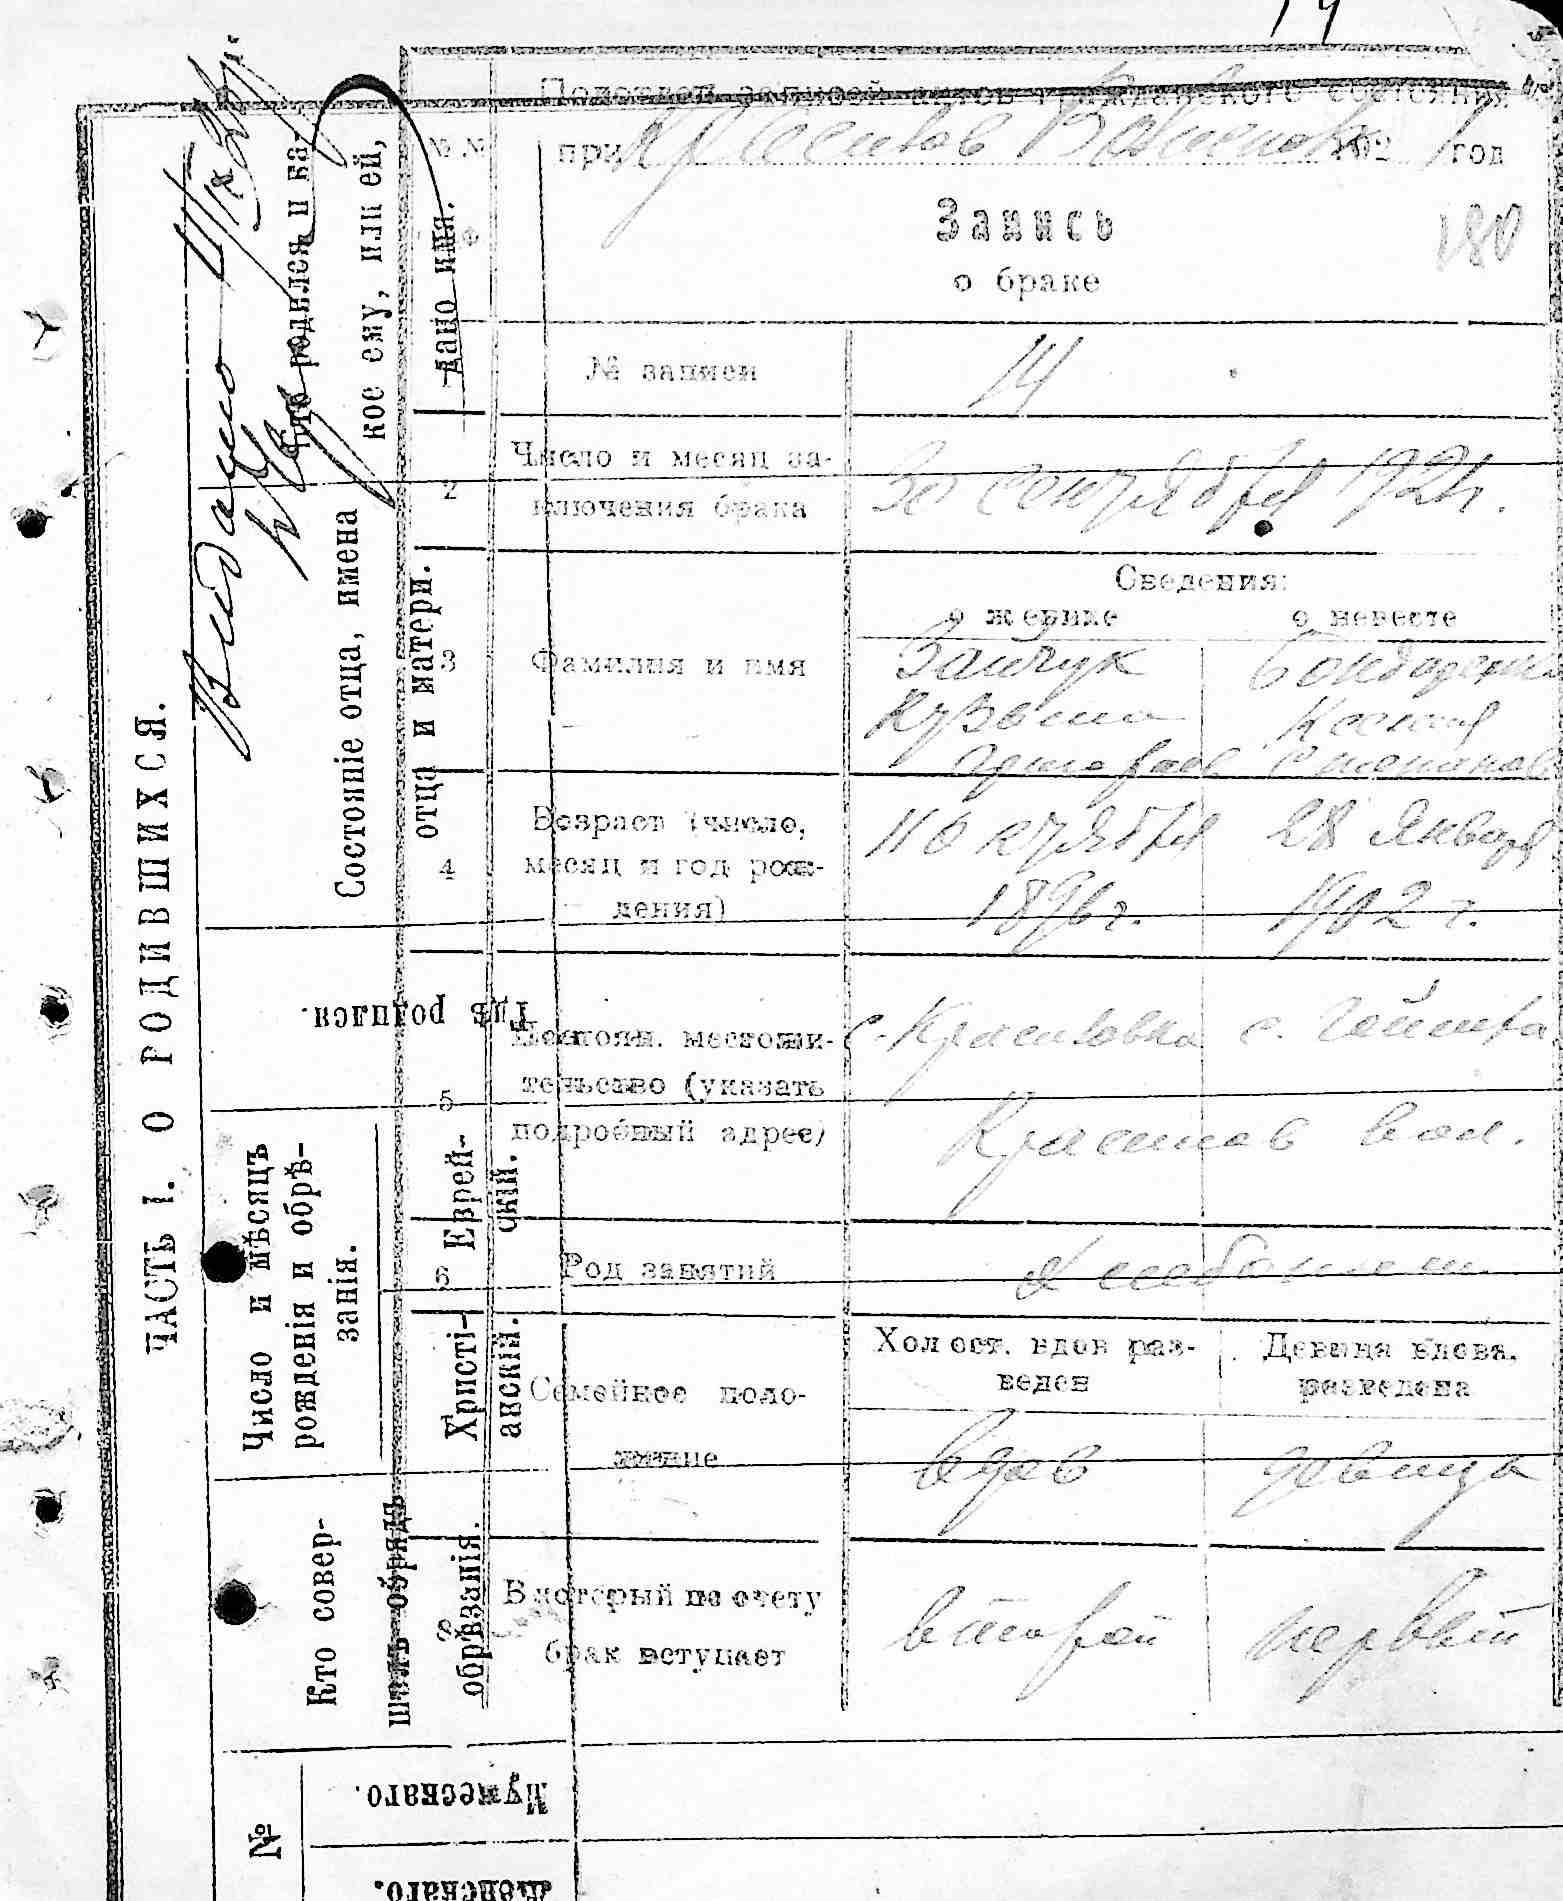 14
Подотдел записей актов гражданского состояния
при 192 1 год
Запись
о браке
180
№ №
№ записи
14
2
Число и месяц за-
ключения брака
30 сентября 1921.
Сведения:
о женихе
о невесте
3
Фамилия и имя
Зайчук
Кузьма
Бондаренко
Ксения
4
Возраст (число,
месяц и год рож-
дения)
1 октября
1896 г.
28 января
1902 г.
5
Постоян. местожи-
тельство (указать
подробный адрес)
с. Красиловка
с.
вол.
6
Род занятий
Хлебопашец
Семейное поло-
жение
Холост. вдов раз-
веден
Девица вдова,
разведена
вдов
девица
8
В который по счету
брак вступает
второй
первый
ЧАСТЬ I. О РОДИВШИХСЯ.
Выдано
Кто родился и ка-
кое ему, или ей,
дано имя.
Состояніе отца, имена
отца и матери.
Гдѣ родился.
Число и мѣсяцъ
рожденія и обрѣ-
занія.
Еврей-
скій.
Христі-
анскій.
Кто совер-
шалъ обрядъ
обрѣзанія.
№
Мужескаго.
Женскаго.